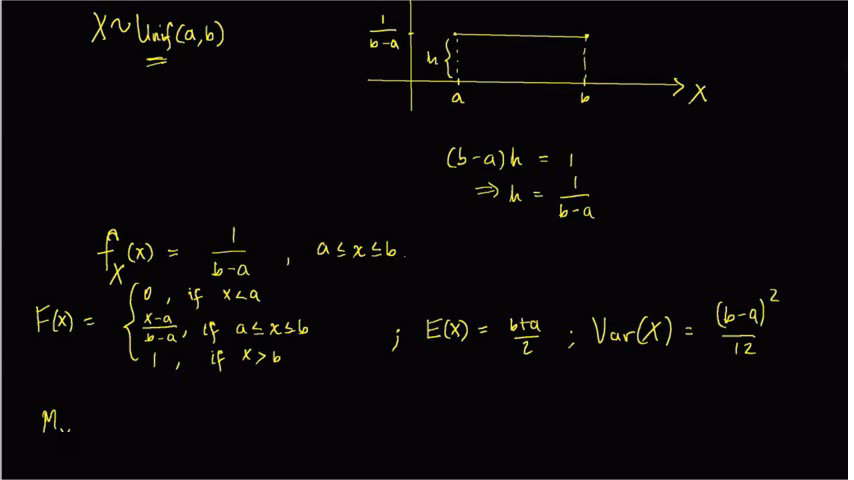 X ~ Unif(a,b)
1/(b-a)
h {
a b X
(b-a)h = 1
⇒ h = 1/(b-a)
f_X(x) = 1/(b-a) , a ≤ x ≤ b.
F(x) = { 0 , if x < a
(x-a)/(b-a) , if a ≤ x ≤ b ; E(X) = (b+a)/2 ; Var(X) = (b-a)²/12
1 , if x > b
M